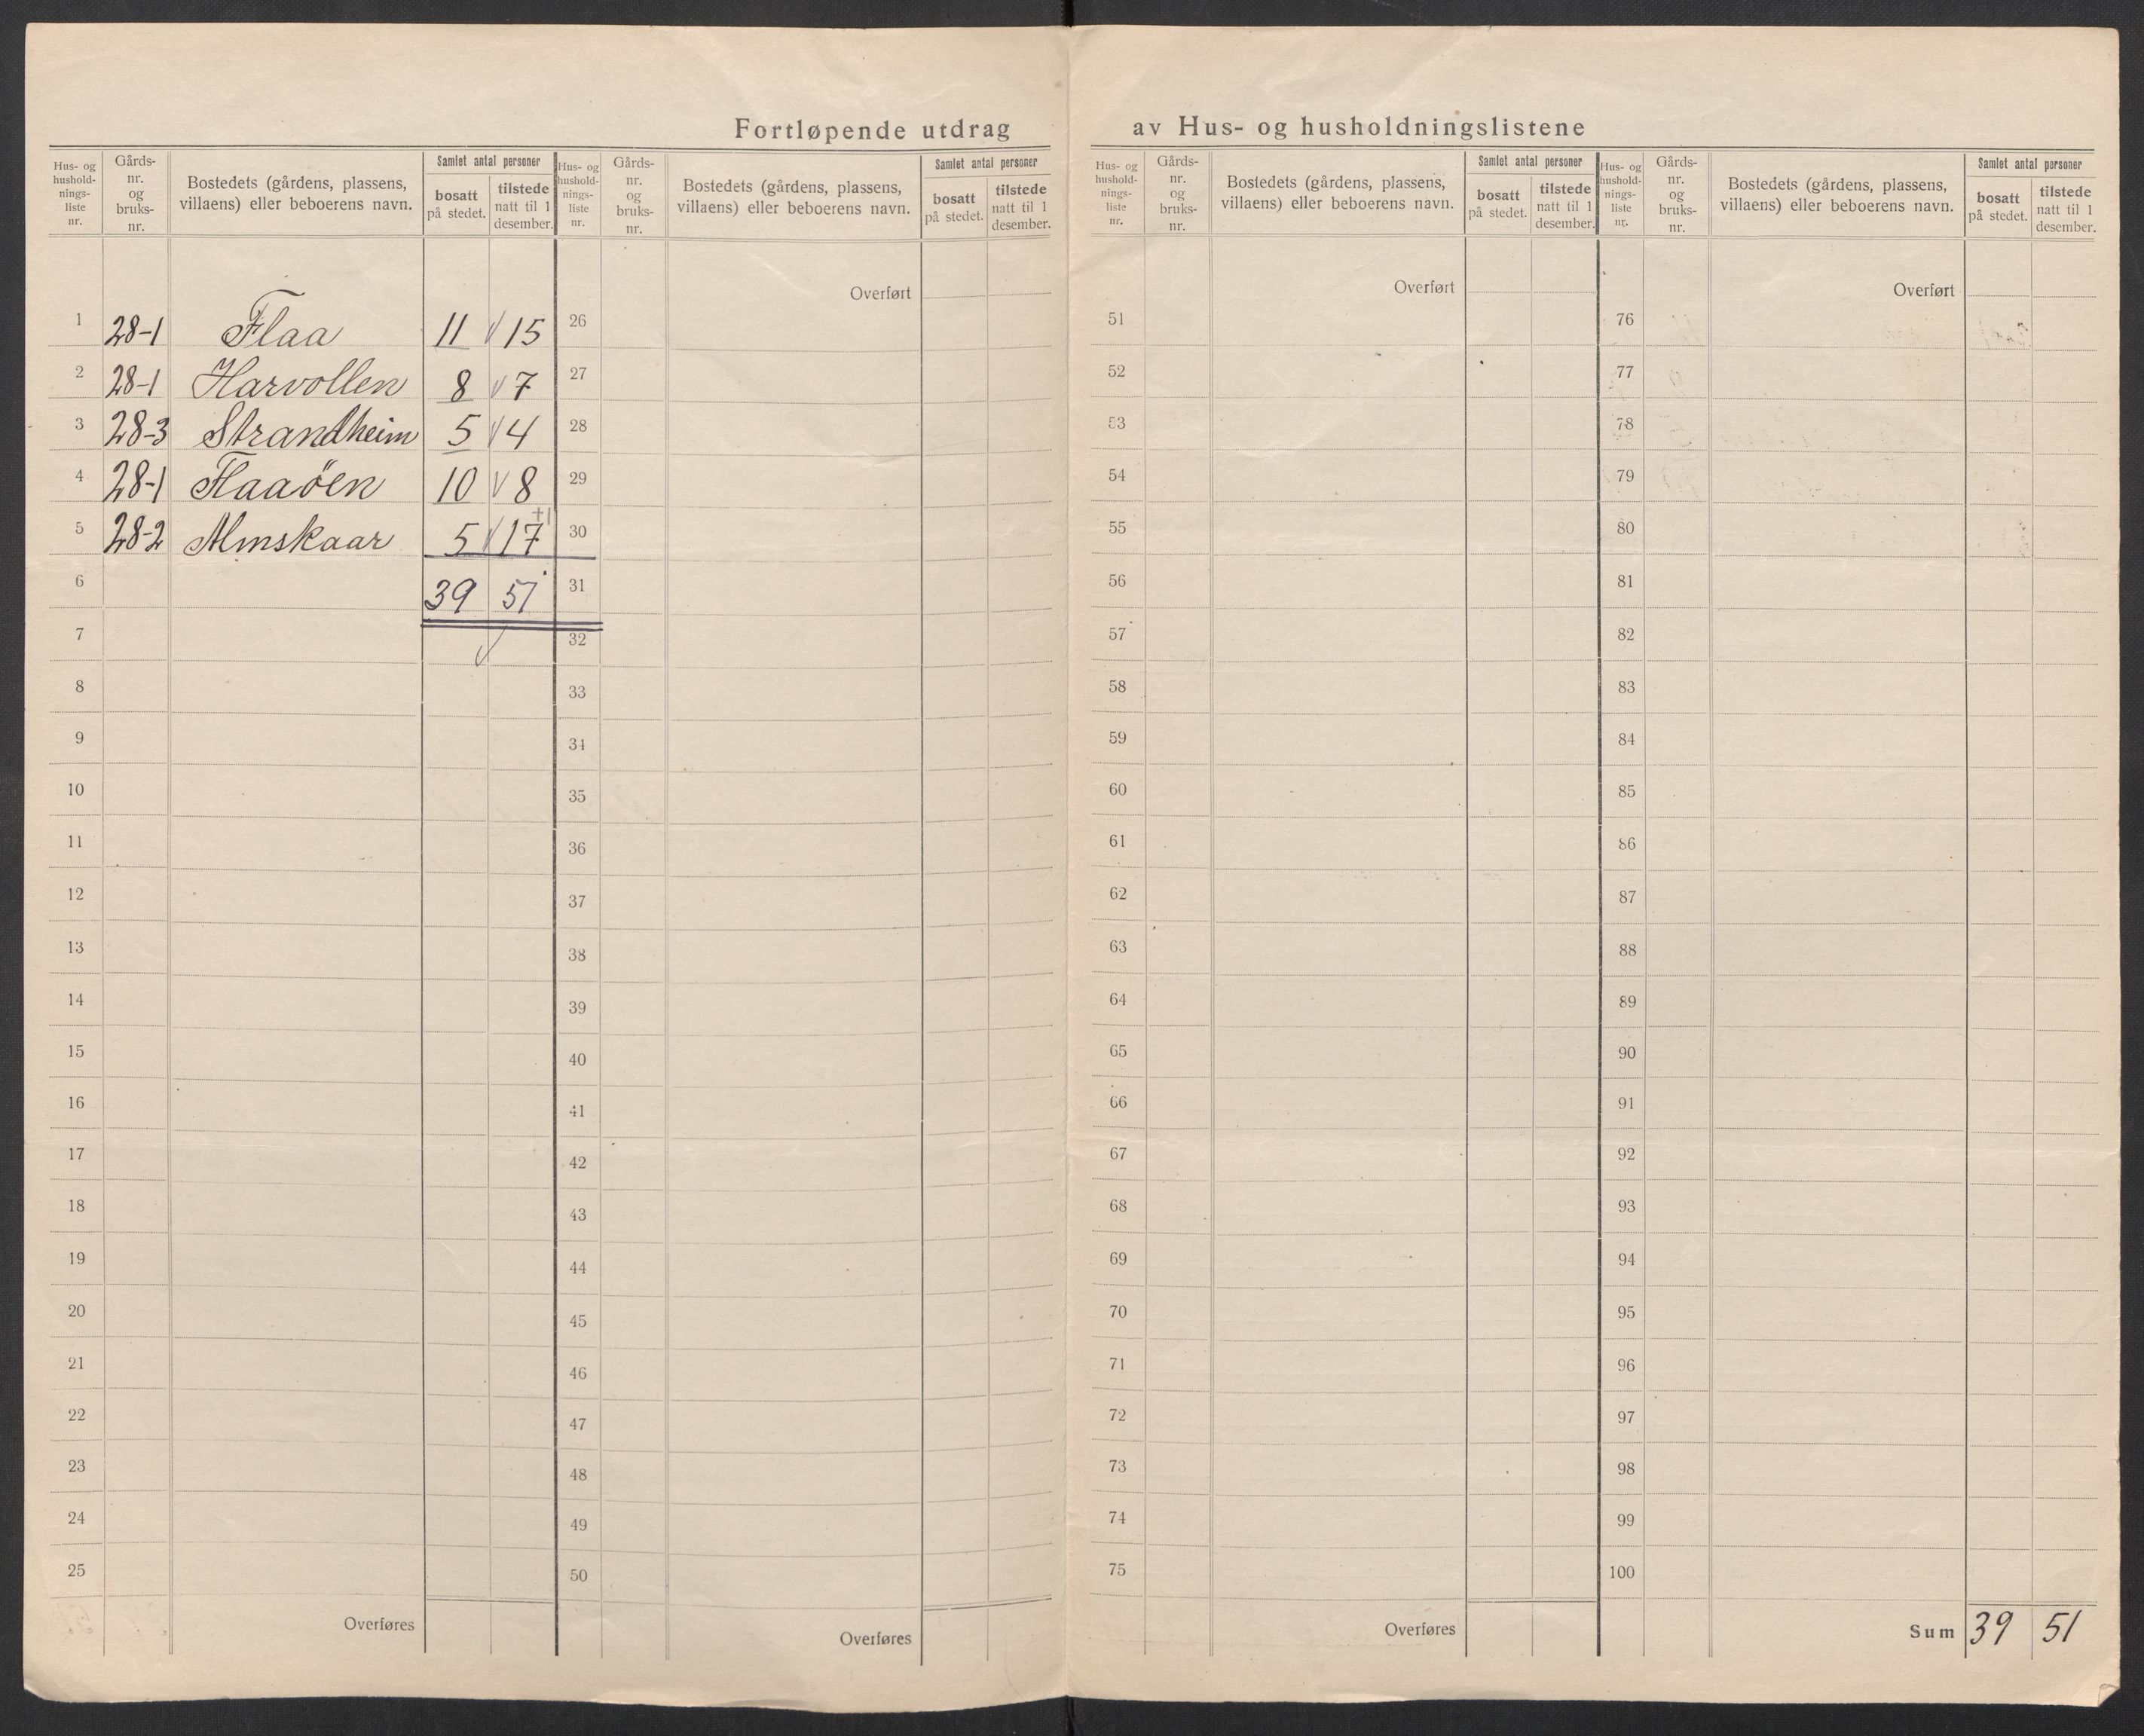 Fortløpende utdrag av Hus- og husholdningslistene
Hus- og hushold- nings- liste nr.
Gårds- nr. og bruks- nr.
Bostedets (gårdens, plassens, villaens) eller beboerens navn.
Samlet antal personer
bosatt på stedet.
tilstede natt til 1 desember.
Hus- og hushold- nings- liste nr.
Gårds- nr. og bruks- nr.
Bostedets (gårdens, plassens, villaens) eller beboerens navn.
Samlet antal personer
bosatt på stedet.
tilstede natt til 1 desember.
Hus- og hushold- nings- liste nr.
Gårds- nr. og bruks- nr.
Bostedets (gårdens, plassens, villaens) eller beboerens navn.
Samlet antal personer
bosatt på stedet.
tilstede natt til 1 desember.
Hus- og hushold- nings- liste nr.
Gårds- nr. og bruks- nr.
Bostedets (gårdens, plassens, villaens) eller beboerens navn.
Samlet antal personer
bosatt på stedet.
tilstede natt til 1 desember.
1 28-1 Flaa 11 15
2 28-1 Harvollen 8 7
3 28-3 Strandheim 5 4
4 28-1 Flaaöen 10 8
5 28-2 Almskaar 5 17 +1
6 39 51
7
8
9
10
11
12
13
14
15
16
17
18
19
20
21
22
23
24
25
Overføres
Overført
26
27
28
29
30
31
32
33
34
35
36
37
38
39
40
41
42
43
44
45
46
47
48
49
50
Overføres
Overført
51
52
53
54
55
56
57
58
59
60
61
62
63
64
65
66
67
68
69
70
71
72
73
74
75
Overføres
Overført
76
77
78
79
80
81
82
83
84
85
86
87
88
89
90
91
92
93
94
95
96
97
98
99
100
Sum 39 51